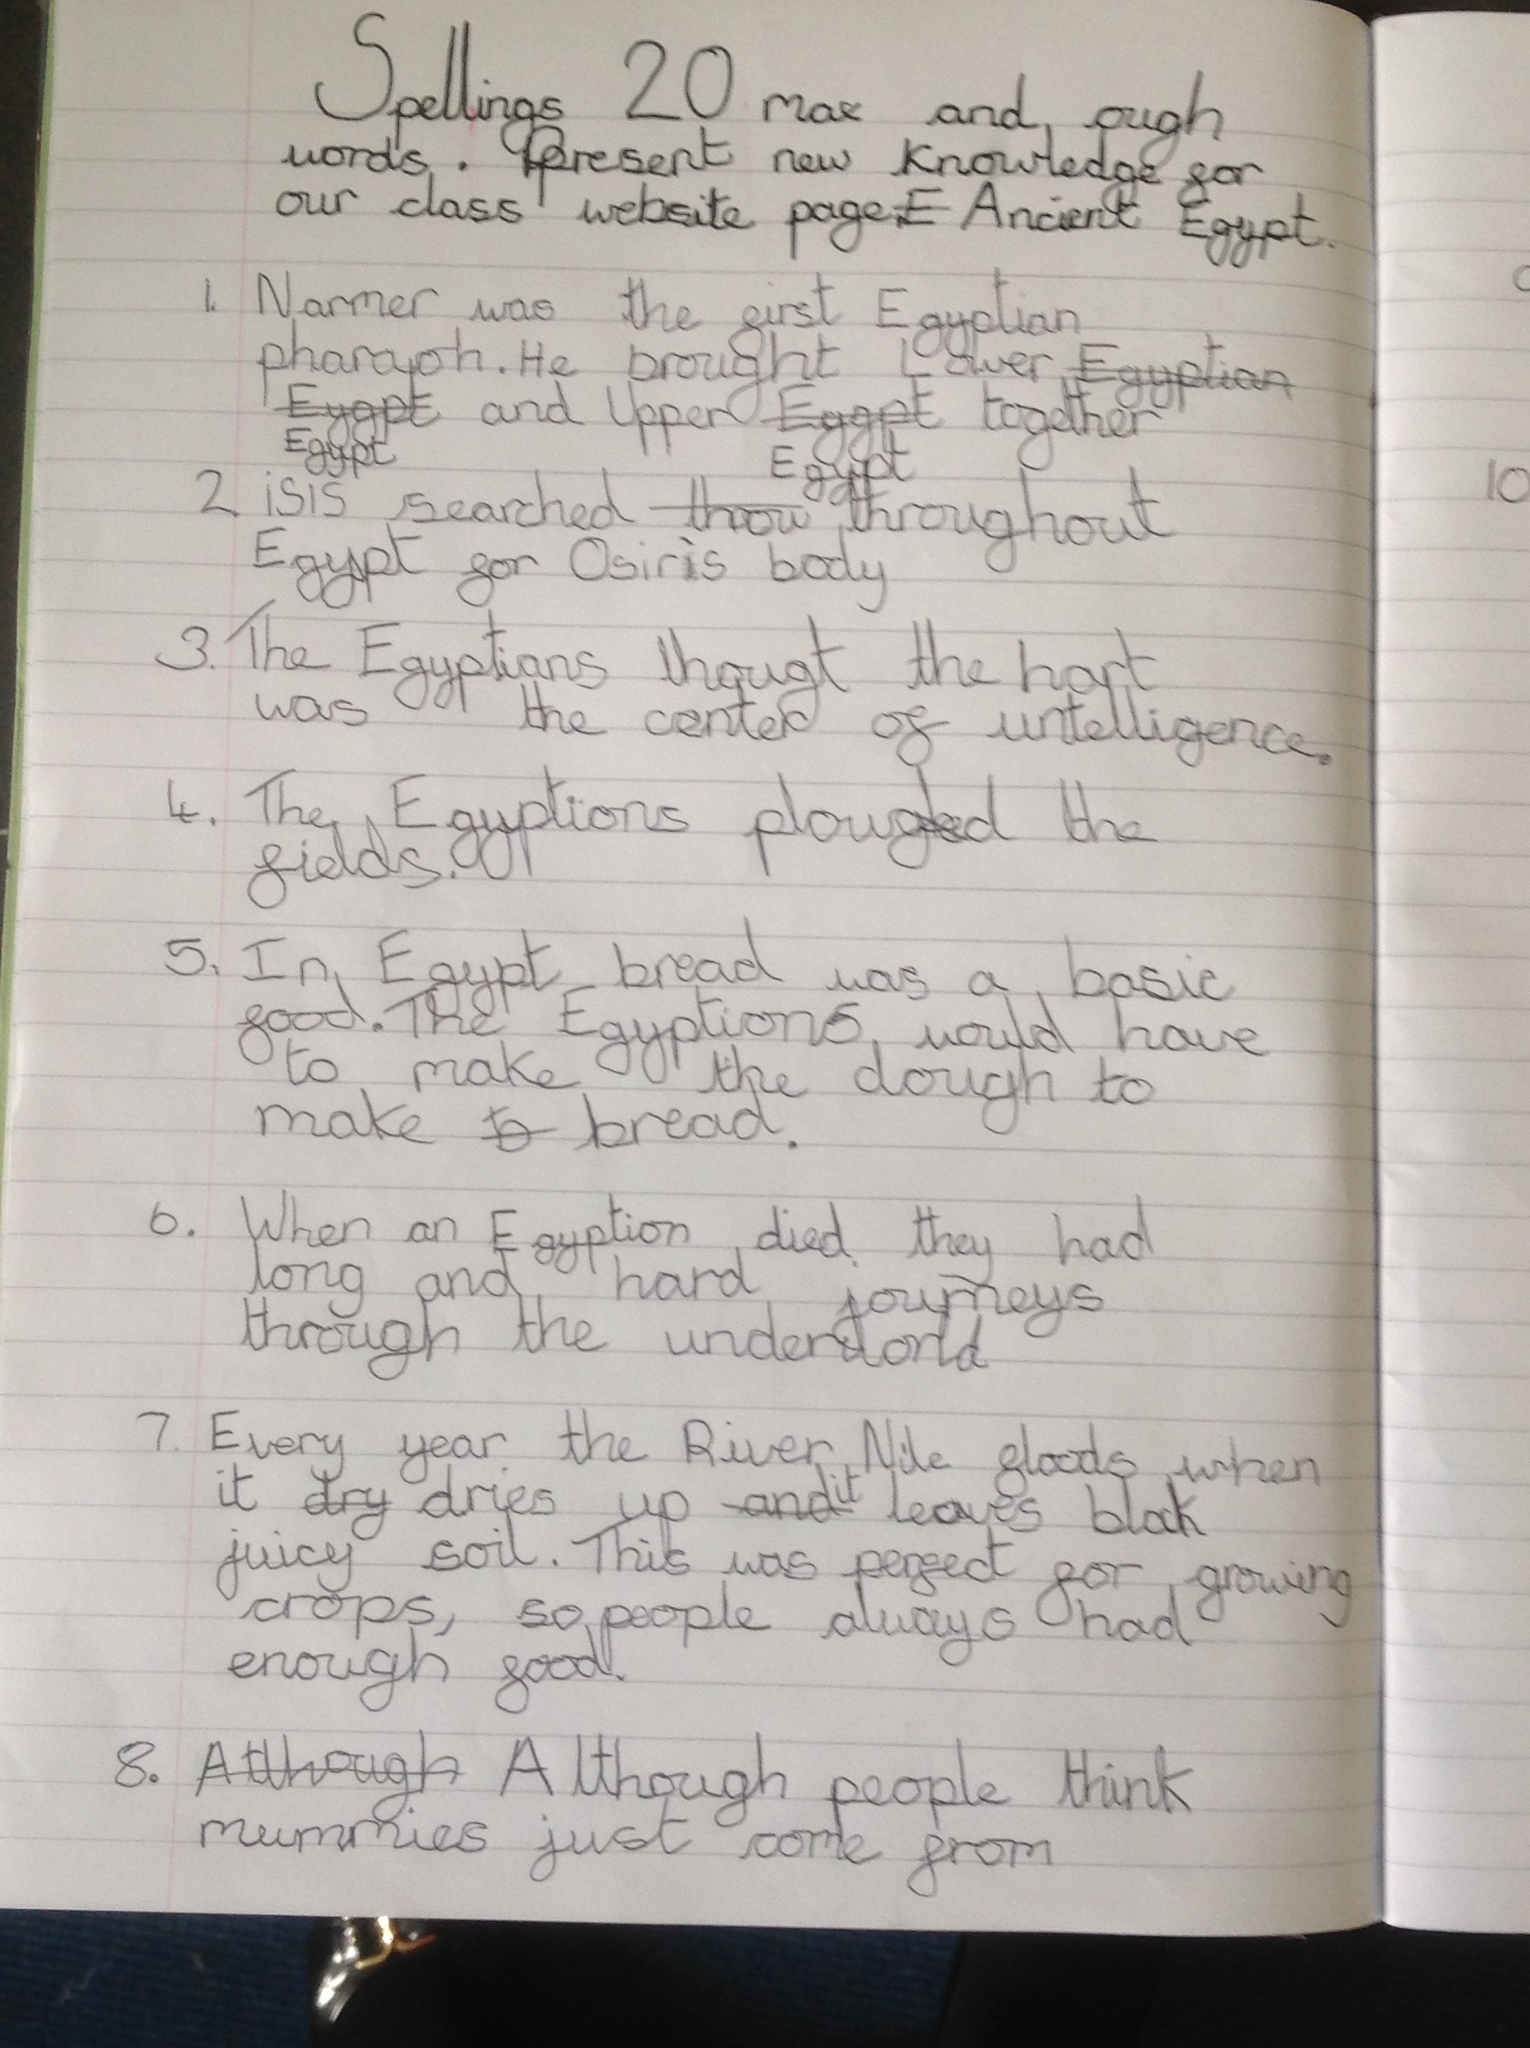 Spellings 20 max and ough
words. Present new knowledge for
our class website page: Ancient Egypt.
1. Narmer was the first Egyptian
pharaoh. He brought Lower Egyptian
Eygpt and Upper Egypt together
Egypt
Egypt
2. isis searched throw throughout
Egypt for Osiris body
3. The Egyptians thougt the hart
was the center of intelligence.
4. The Egyptions ploughed the
fields.
5. In Egypt bread was a basic
food. The Egyptions would have
to make the dough to
make to bread.
6. When an Egyption died they had
long and hard journeys
through the
7. Every year the River Nile floods when
it dry dries up and it leaves black
juicy soil. This was perfect for growing
crops, so people always had
enough food.
8. Although Although people think
mummies just come from
10